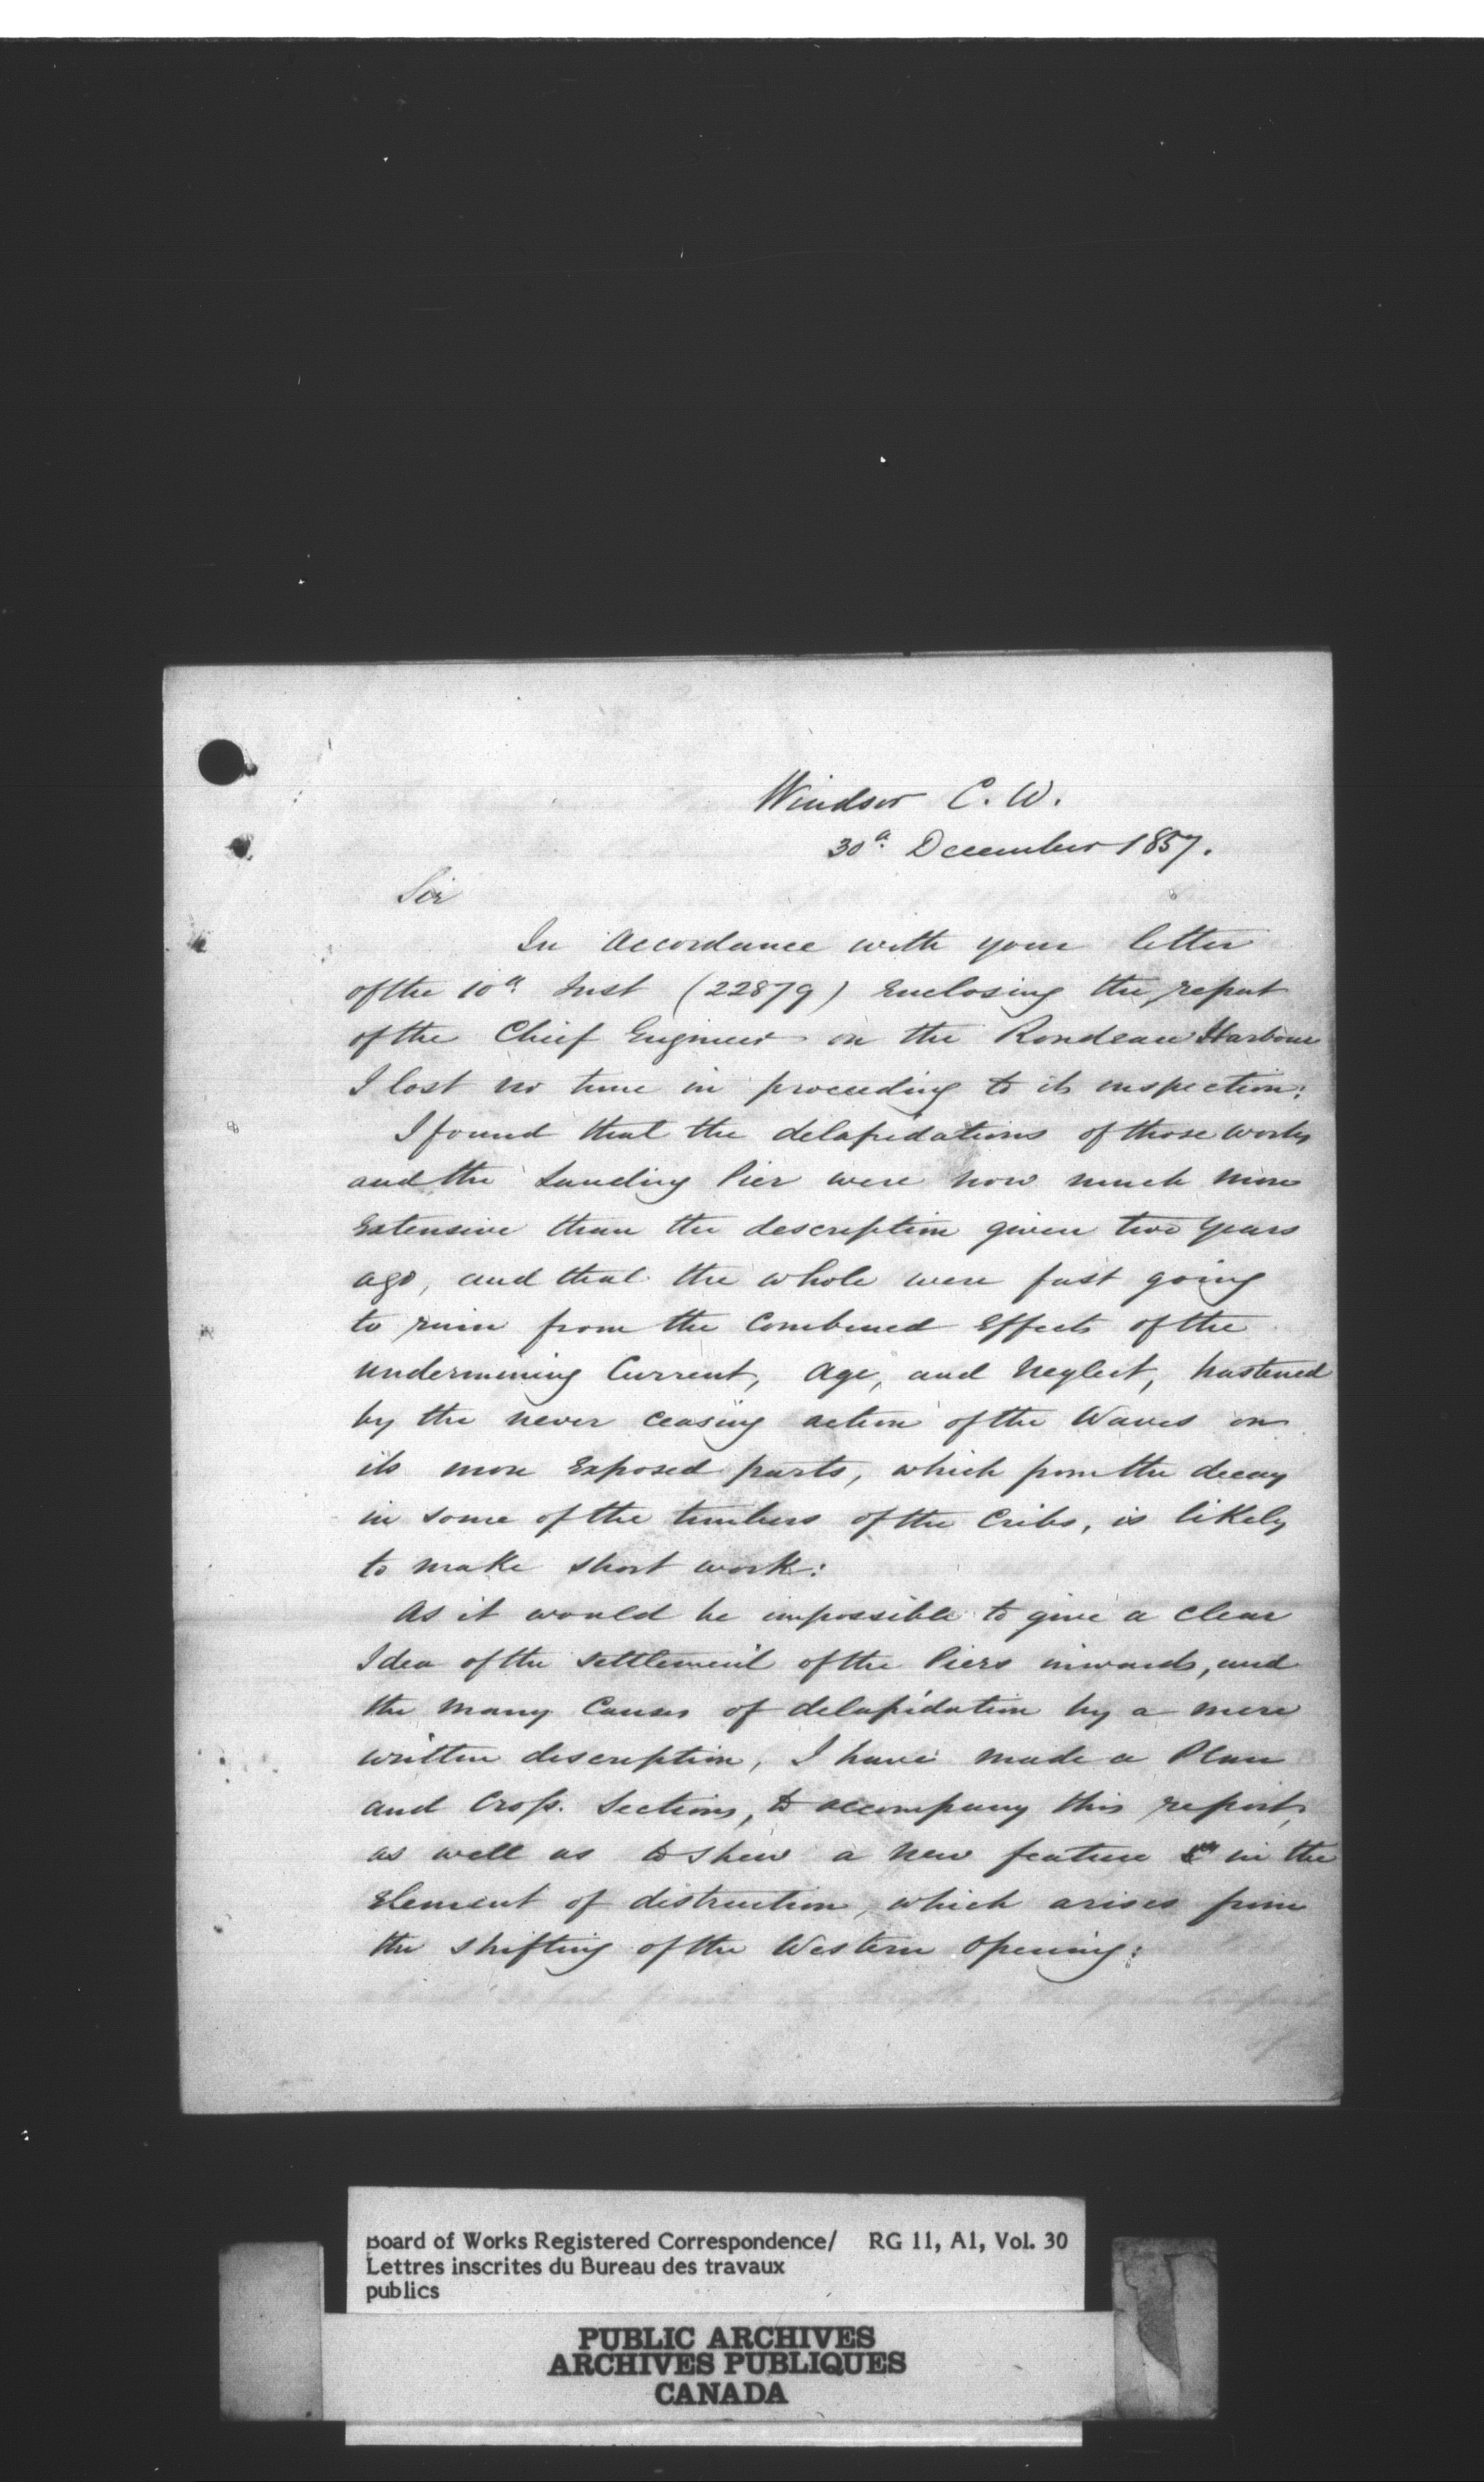 Windsor C. W.
30th December 1857.
Sir
In Accordance with your letter
of the 10th Inst (22879) Enclosing the report
of the Chief Engineer on the Rondeau Harbour
I lost no time in proceeding to its inspection:
I found that the delapidations of those works
and the Landing Pier were now much more
Extensive than the description given two years
ago, and that the whole were fast going
to ruin from the Combined Effects of the
undermining Current, Age, and Neglect, hastened
by the never ceasing action of the Waves on
its more Exposed parts, which from the decay
in some of the timbers of the Cribs, is likely
to make short work:
As it would be impossible to give a clear
Idea of the settlement of the Piers inwards, and
the many Causes of delapidation by a mere
written description, I have made a Plan
and Cross. Sections, to accompany this report,
as well as to shew a new feature in the
Element of distruction, which arises from
the shifting of the Western Opening:
Board of Works Registered Correspondence/ RG 11, A1, Vol. 30
Lettres inscrites du Bureau des travaux
publics
PUBLIC ARCHIVES
ARCHIVES PUBLIQUES
CANADA